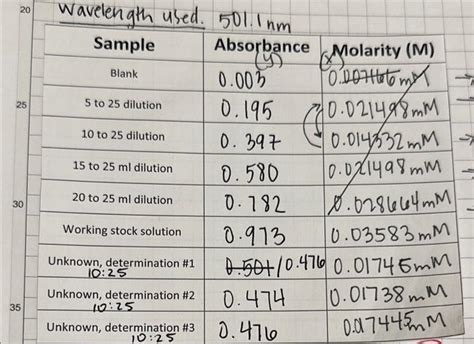 20
Wavelength used. 501.1nm
Sample Absorbance (y) (x) Molarity (M)
Blank 0.003 0.007166 mM
25
5 to 25 dilution 0.195 0.021498 mM
10 to 25 dilution 0.397 0.014332 mM
15 to 25 ml dilution 0.580 0.021498 mM
30
20 to 25 ml dilution 0.782 0.028664 mM
Working stock solution 0.973 0.03583 mM
Unknown, determination #1 0.501/0.476 0.01745 mM
10:25
Unknown, determination #2 0.474 0.01738 mM
10:25
35
Unknown, determination #3 0.476 0.017445 mM
10:25